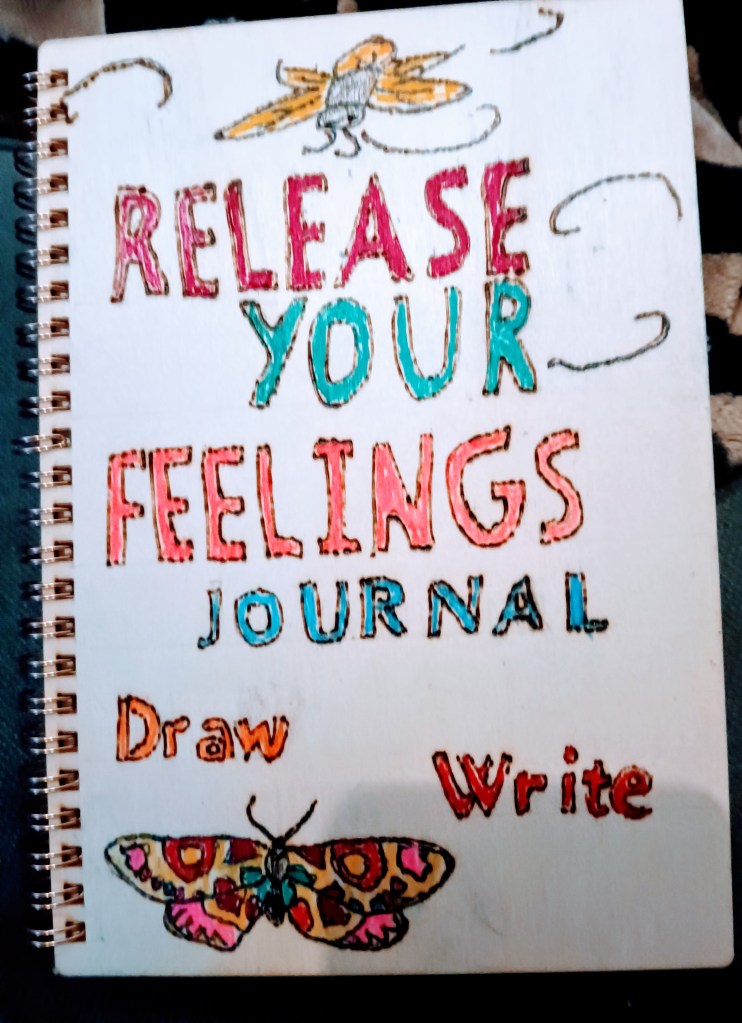 RELEASE
YOUR
FEELINGS
JOURNAL
Draw
Write